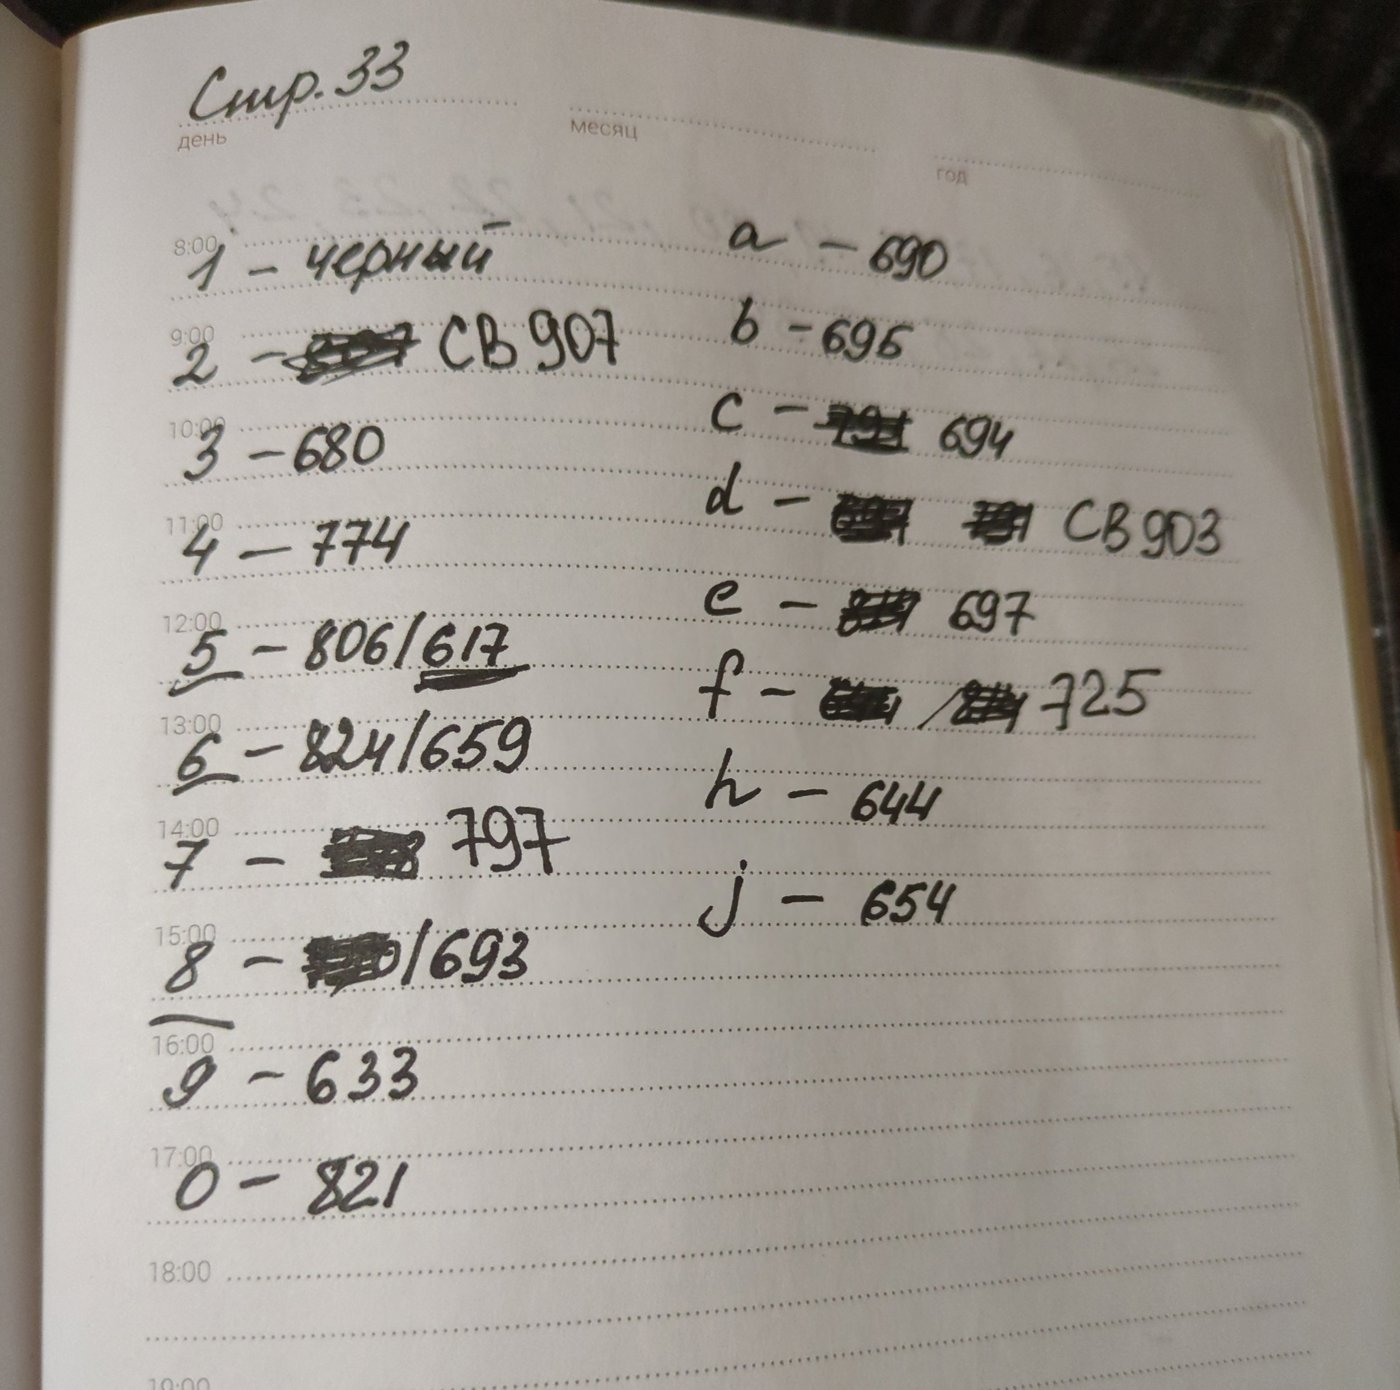 Стр. 33
день
месяц
год
8:00
1 - черный
9:00
2 - СВ 907
10:00
3 - 680
11:00
4 - 774
12:00
5 - 806/617
13:00
6 - 824/659
14:00
7 - 797
15:00
8 - /693
16:00
9 - 633
17:00
0 - 821
18:00
19:00
a - 690
b - 696
c - 694
d - СВ 903
e - 697
f - / 725
h - 644
j - 654